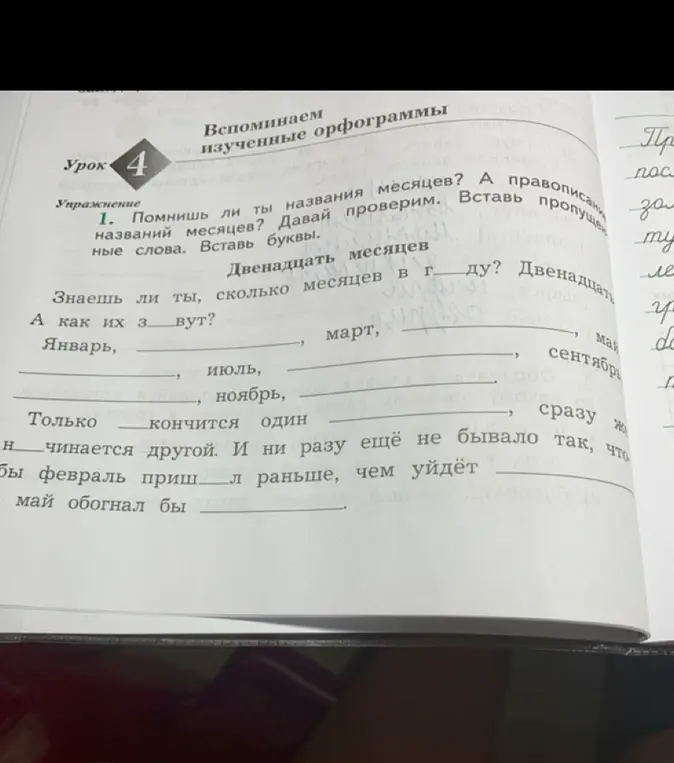 Вспоминаем
изученные орфограммы
Урок 4
Упражнение
1. Помнишь ли ты названия месяцев? А правописани
названий месяцев? Давай проверим. Вставь пропущен
ные слова. Вставь буквы.
Двенадцать месяцев
Знаешь ли ты, сколько месяцев в г__ду? Двенадцать
А как их з__вут?
Январь, __________, март, __________, май
__________, июль, __________, сентябрь
__________, ноябрь, __________.
Только __кончится один __________, сразу ж
н__чинается другой. И ни разу ещё не бывало так, что
бы февраль приш__л раньше, чем уйдёт __________
май обогнал бы __________.
Пр
пос
зол
ту